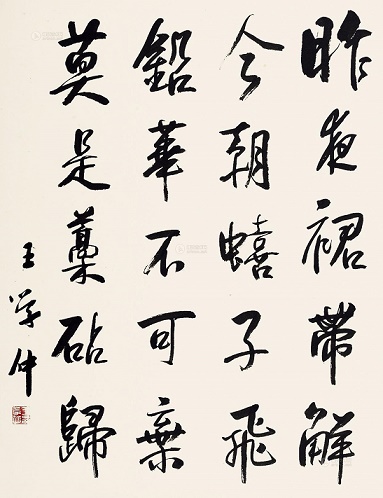 昨夜裙帶解
今朝蟢子飛
鉛華不可棄
莫是藁砧歸
王学仲